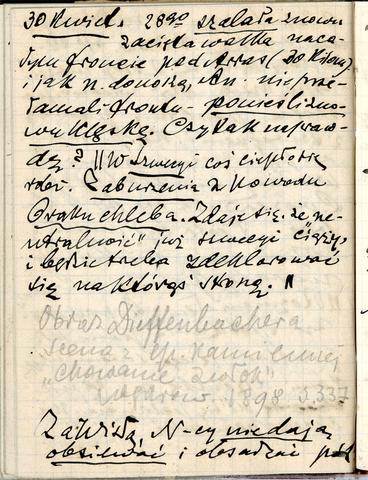 30 Kwiet. 28go szalała znowu
zacięta walka na ca-
łym froncie pod Arras (30 kilom)
i jak n. donoszą, An. nie prze-
łamali frontu - ponieśli zno-
wu klęskę. Czy tak napraw-
dę? || W Szwecyi coś ciepło się
robi. Zaburzenia z powodu
braku chleba. Zdaje się, że „ne-
utralność" już Szwecyi cięży,
i będzie trzeba zdeklarować
się na którąś stronę. ||
Obraz Dieffenbachera
Scena z ep. kamiennej
„Chowanie zwłok"
1898 S. 337
Za Wisłą, N-cy nie dają
obsiewać i obsadzać pól